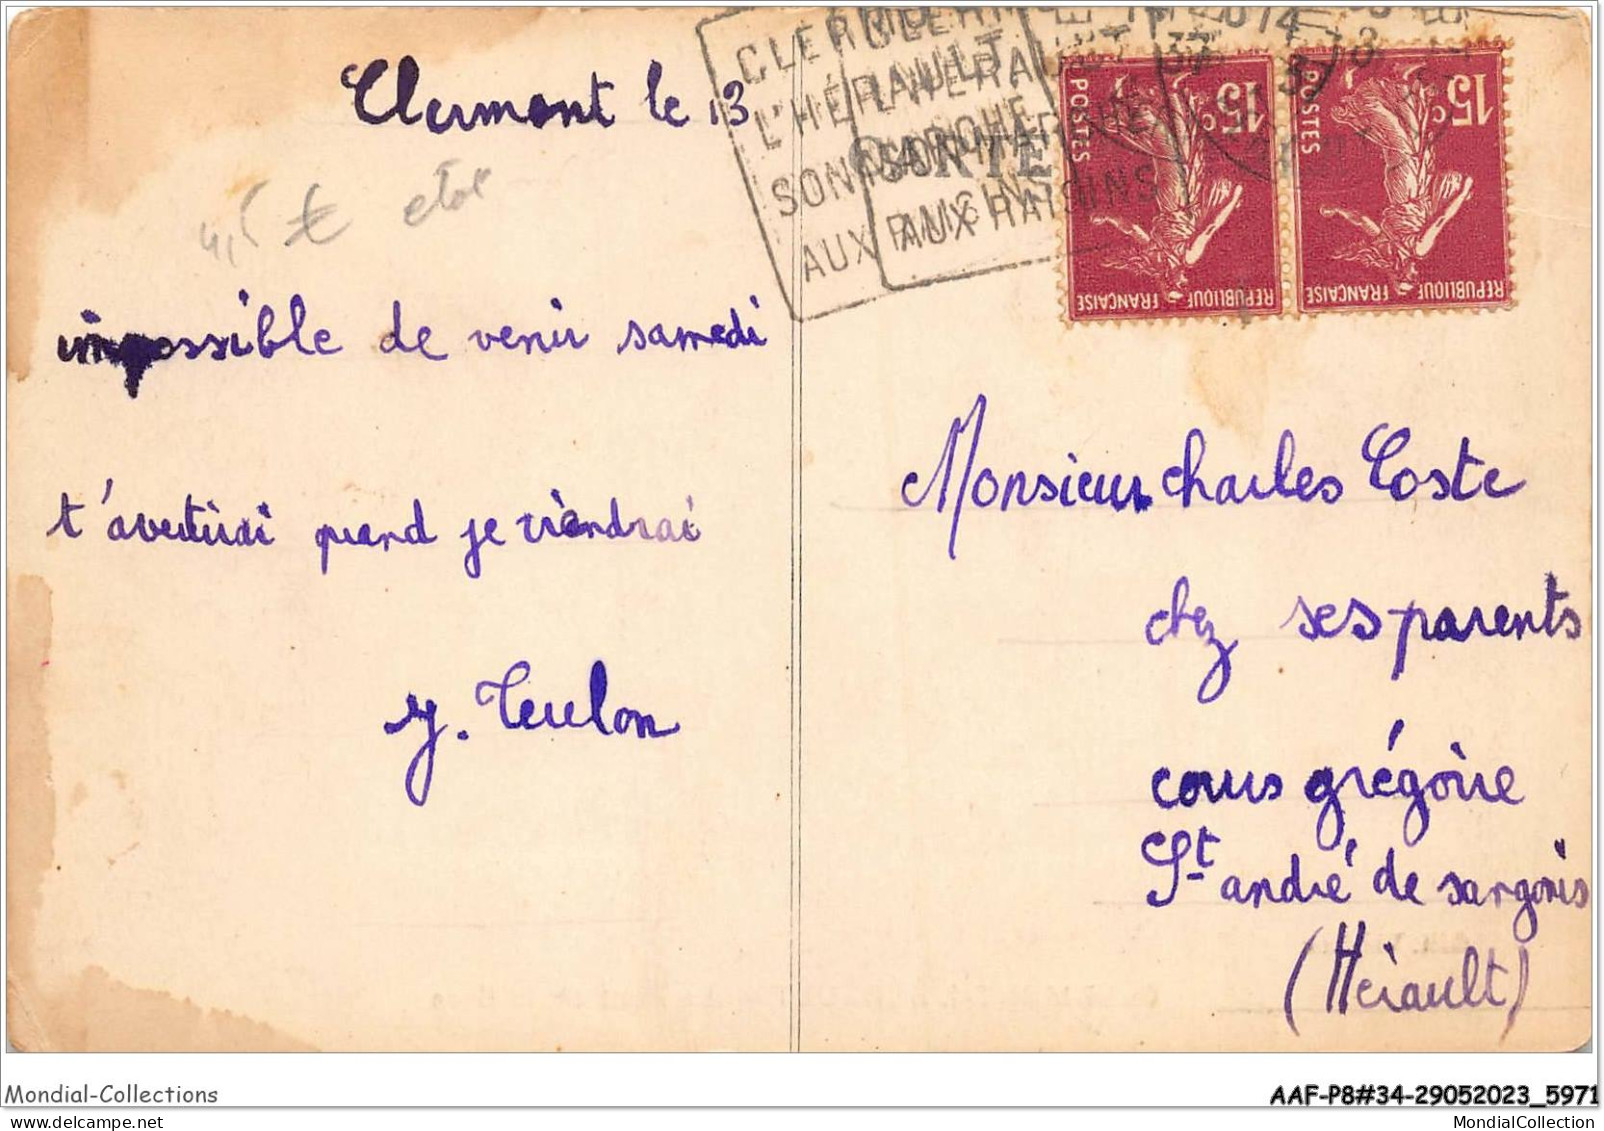 Clermont le 13
4,5 €
impossible de venir samedi
t'avertirai quand je viendrai
y. Teulon
CLERMONT
L'HÉRAULT
SON MARCHÉ
AUX RAISINS
CARTE
POSTES
15c
RÉPUBLIQUE FRANÇAISE
POSTES
15c
RÉPUBLIQUE FRANÇAISE
Monsieur Charles Coste
chez ses parents
cours grégoire
St andré de sangonis
(Hérault)
Mondial-Collections
AAF-P8#34-29052023_5971
MondialCollection